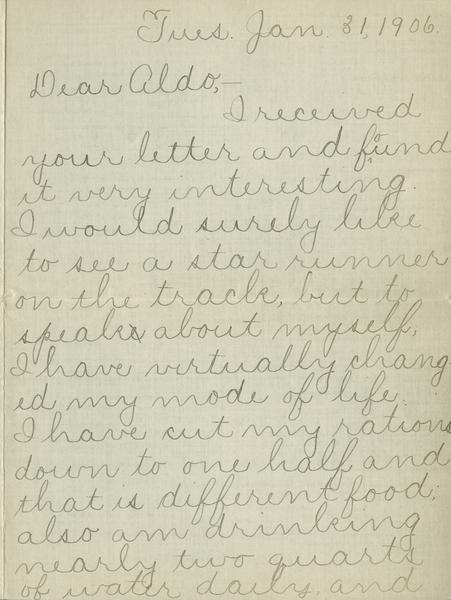 Tues. Jan. 31, 1906.
Dear Aldo,—
I received
your letter and found
it very interesting.
I would surely like
to see a star runner
on the track, but to
speak about myself,
I have virtually chang-
ed my mode of life.
I have cut my rations
down to one half and
that is different food;
also am drinking
nearly two quarts
of water daily, and